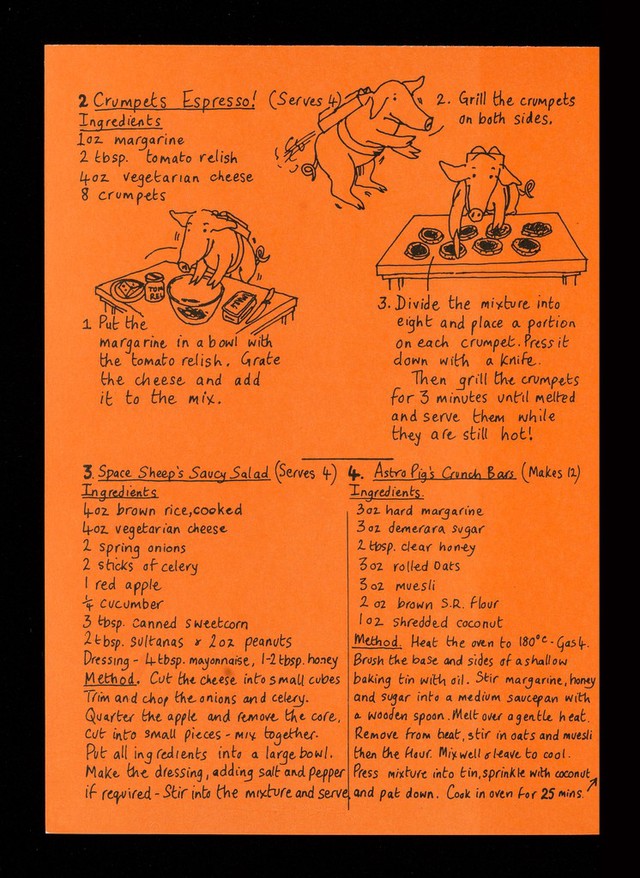 2 Crumpets Espresso! (Serves 4)
Ingredients
1oz margarine
2 tbsp. tomato relish
4oz vegetarian cheese
8 crumpets
TOM
REL
1 Put the
margarine in a bowl with
the tomato relish. Grate
the cheese and add
it to the mix.
2. Grill the crumpets
on both sides.
3. Divide the mixture into
eight and place a portion
on each crumpet. Press it
down with a knife.
Then grill the crumpets
for 3 minutes until melted
and serve them while
they are still hot!
3. Space Sheep's Saucy Salad (Serves 4)
Ingredients
4oz brown rice, cooked
4oz vegetarian cheese
2 spring onions
2 sticks of celery
1 red apple
¼ cucumber
3 tbsp. canned sweetcorn
2 tbsp. sultanas & 2oz peanuts
Dressing - 4 tbsp. mayonnaise, 1-2 tbsp. honey
Method. Cut the cheese into small cubes
Trim and chop the onions and celery.
Quarter the apple and remove the core.
Cut into small pieces - mix together.
Put all ingredients into a large bowl.
Make the dressing, adding salt and pepper
if required - Stir into the mixture and serve
4. Astro Pig's Crunch Bars (Makes 12)
Ingredients.
3oz hard margarine
3oz demerara sugar
2 tbsp. clear honey
3oz rolled oats
3oz muesli
2 oz brown S.R. flour
1oz shredded coconut
Method. Heat the oven to 180°C - Gas 4.
Brush the base and sides of a shallow
baking tin with oil. Stir margarine, honey
and sugar into a medium saucepan with
a wooden spoon. Melt over a gentle heat.
Remove from heat, stir in oats and muesli
then the flour. Mix well & leave to cool.
Press mixture into tin, sprinkle with coconut
and pat down. Cook in oven for 25 mins.